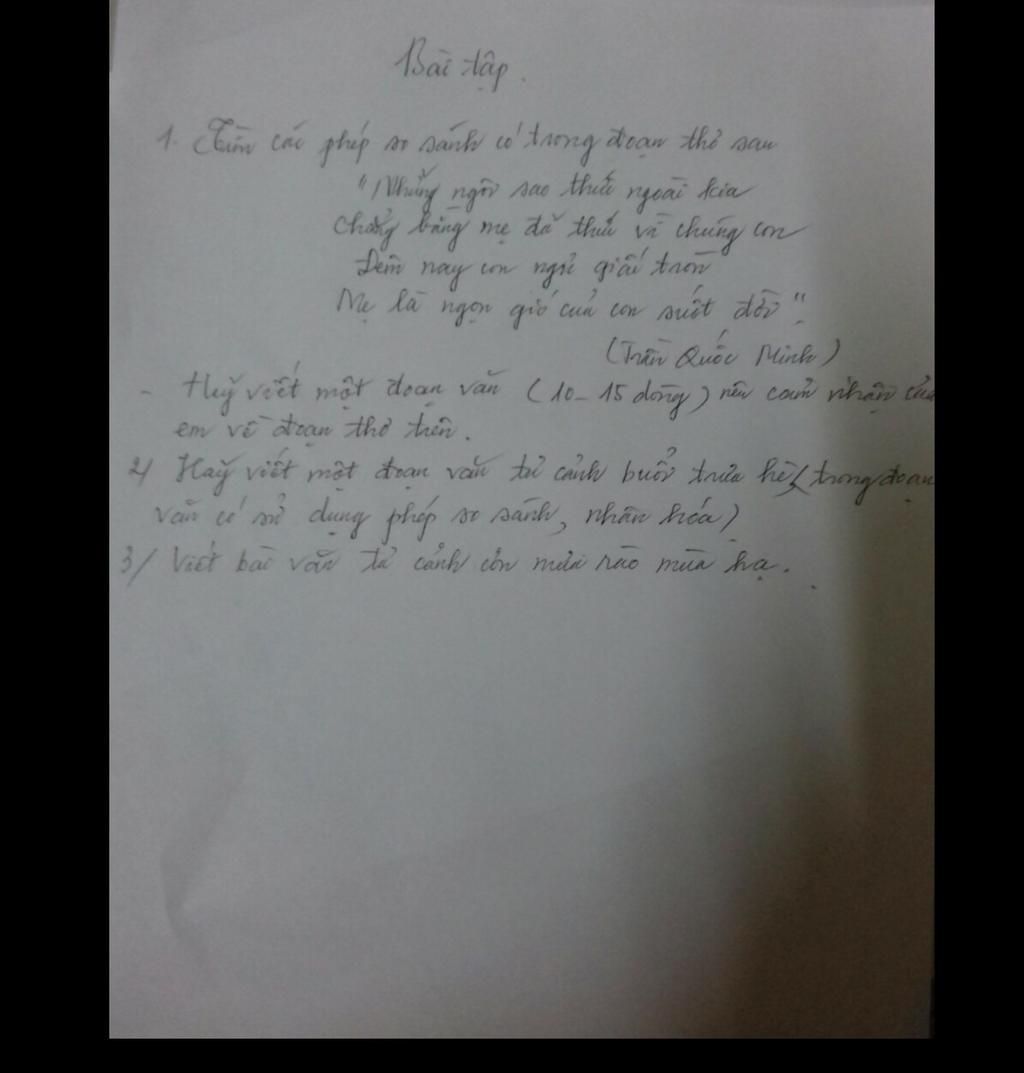 Bài tập.
1. Tìm các phép so sánh có trong đoạn thơ sau
"Những ngôi sao thức ngoài kia
Chẳng bằng mẹ đã thức vì chúng con
Đêm nay con ngủ giấc tròn
Mẹ là ngọn gió của con suốt đời".
(Trần Quốc Minh)
- Hãy viết một đoạn văn (10-15 dòng) nêu cảm nhận của
em về đoạn thơ trên.
2/ Hãy viết một đoạn văn tả cảnh buổi trưa hè (trong đoạn
văn có sử dụng phép so sánh, nhân hóa)
3/ Viết bài văn tả cảnh cơn mưa rào mùa hạ.